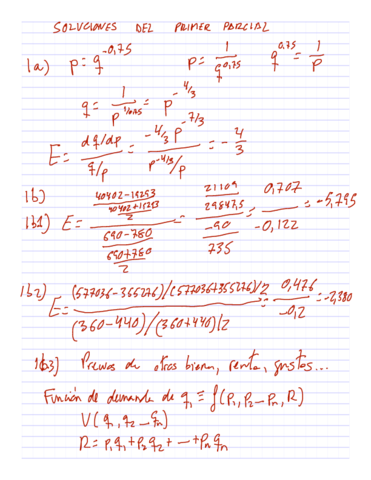 SOLUCIONES DEL PRIMER PARCIAL
1a) p = q^-0,75   p = 1/q^0,75   q^0,75 = 1/p
q = 1/p^1/0,75 = p^-4/3
E = (dq/dp)/(q/p) = (-4/3 p^-7/3)/(p^-4/3/p) = -4/3
1b)
1b1) E = ((40402-19293)/((40402+19293)/2))/((690-780)/((690+780)/2)) = (21109/29847,5)/(-90/735) = 0,707/-0,122 = -5,795
1b2) E = ((577036-355276)/(577036+355276)/2)/((360-440)/(360+440)/2) = 0,476/-0,2 = -2,380
1b3) Precios de otros bienes, renta, gustos...
Función de demanda de q1 ≡ f(P1, P2 - Pn, R)
U(q1, q2 - qn)
R = P1q1 + P2q2 + --- + Pnqn